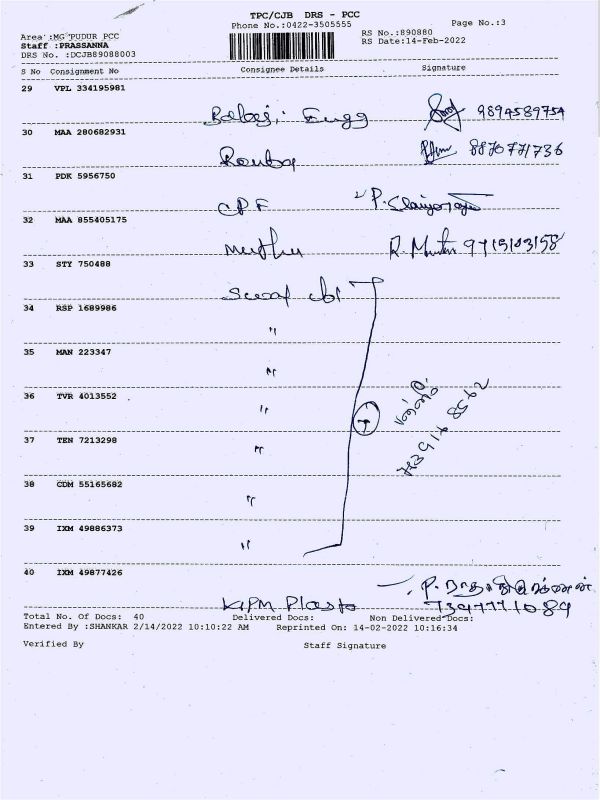 TPC/CJB DRS - PCC
Phone No.:0422-3505555 Page No.:3
Area :MG PUDUR PCC RS No.:890880
Staff :PRASSANNA RS Date:14-Feb-2022
DRS No. :DCJB89088003
S No Consignment No Consignee Details Signature
29 VPL 334195981
Balaji Engg 9894589754
30 MAA 280682931
8870771736
31 PDK 5956750
CPF P.
32 MAA 855405175
Muthu R. Muthu
33 STY 750488
34 RSP 1689986
"
35 MAN 223347
"
36 TVR 4013552
"
37 TEN 7213298
"
38 CDM 55165682
"
39 IXM 49886373
"
40 IXM 49877426
KPM Plasto P.
Total No. Of Docs: 40 Delivered Docs: Non Delivered Docs:
Entered By :SHANKAR 2/14/2022 10:10:22 AM Reprinted On: 14-02-2022 10:16:34
Verified By Staff Signature